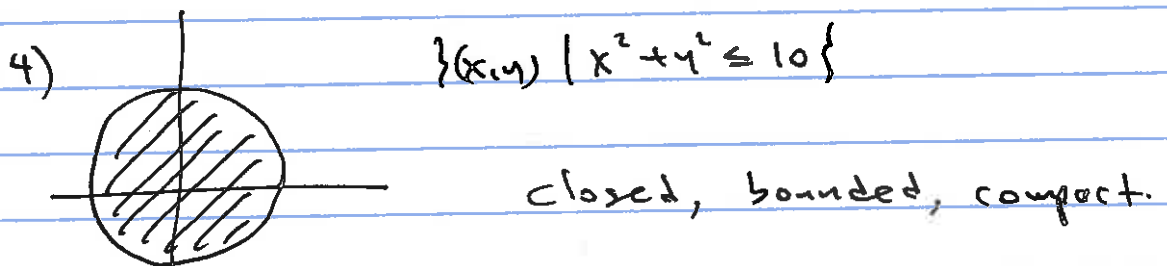 4) }(x,y) | x² + y² ≤ 10{
closed, bounded, compact.